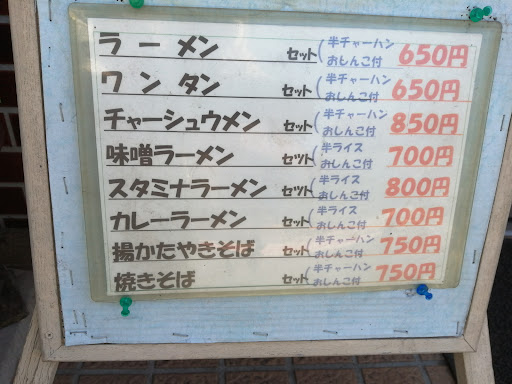 ラーメン セット(半チャーハン おしんこ付 650円
ワンタン セット(半チャーハン おしんこ付 650円
チャーシュウメン セット(半チャーハン おしんこ付 850円
味噌ラーメン セット(半ライス おしんこ付 700円
スタミナラーメン セット(半ライス おしんこ付 800円
カレーラーメン セット(半ライス おしんこ付 700円
揚かたやきそば セット(半チャーハン おしんこ付 750円
焼きそば セット(半チャーハン おしんこ付 750円